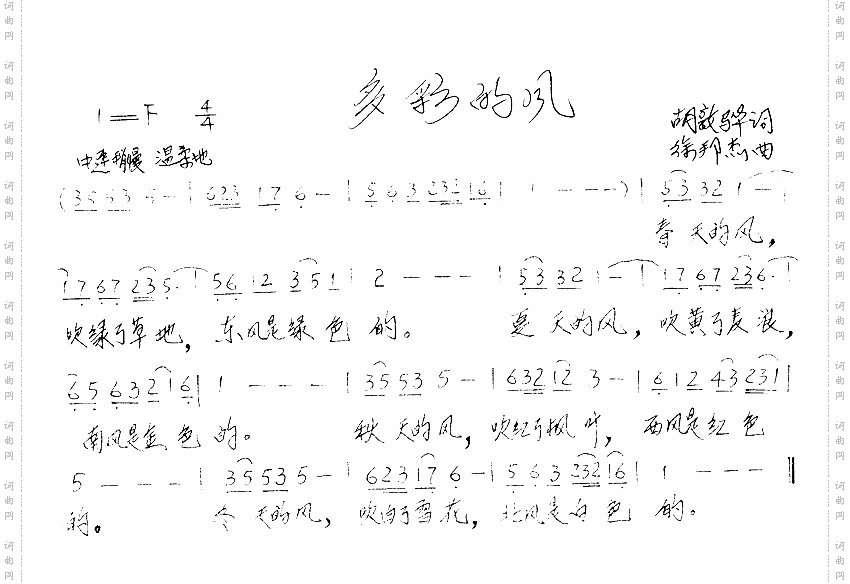 多彩的风
1=F 4/4
胡敦骅词
中速稍慢 温柔地
徐邦杰曲
(35 53 5 - | 623 17 6 - | 5 6 3 232 16 | 1 - - -) | 53 32 1 - |
春天的风,
17 67 235· | 56 12 351 | 2 - - - | 53 32 1 - | 17 67 236· |
吹绿了草地, 东风是绿色的。 夏天的风, 吹黄了麦浪,
65 63 2 16 | 1 - - - | 35 53 5 - | 632 12 3 - | 6 12 43 231 |
南风是金色的。 秋天的风, 吹红了枫叶, 西风是红色
5 - - - | 35 53 5 - | 623 17 6 - | 5 6 3 232 16 | 1 - - - ‖
的。 冬天的风, 吹白了雪花, 北风是白色的。
词曲网